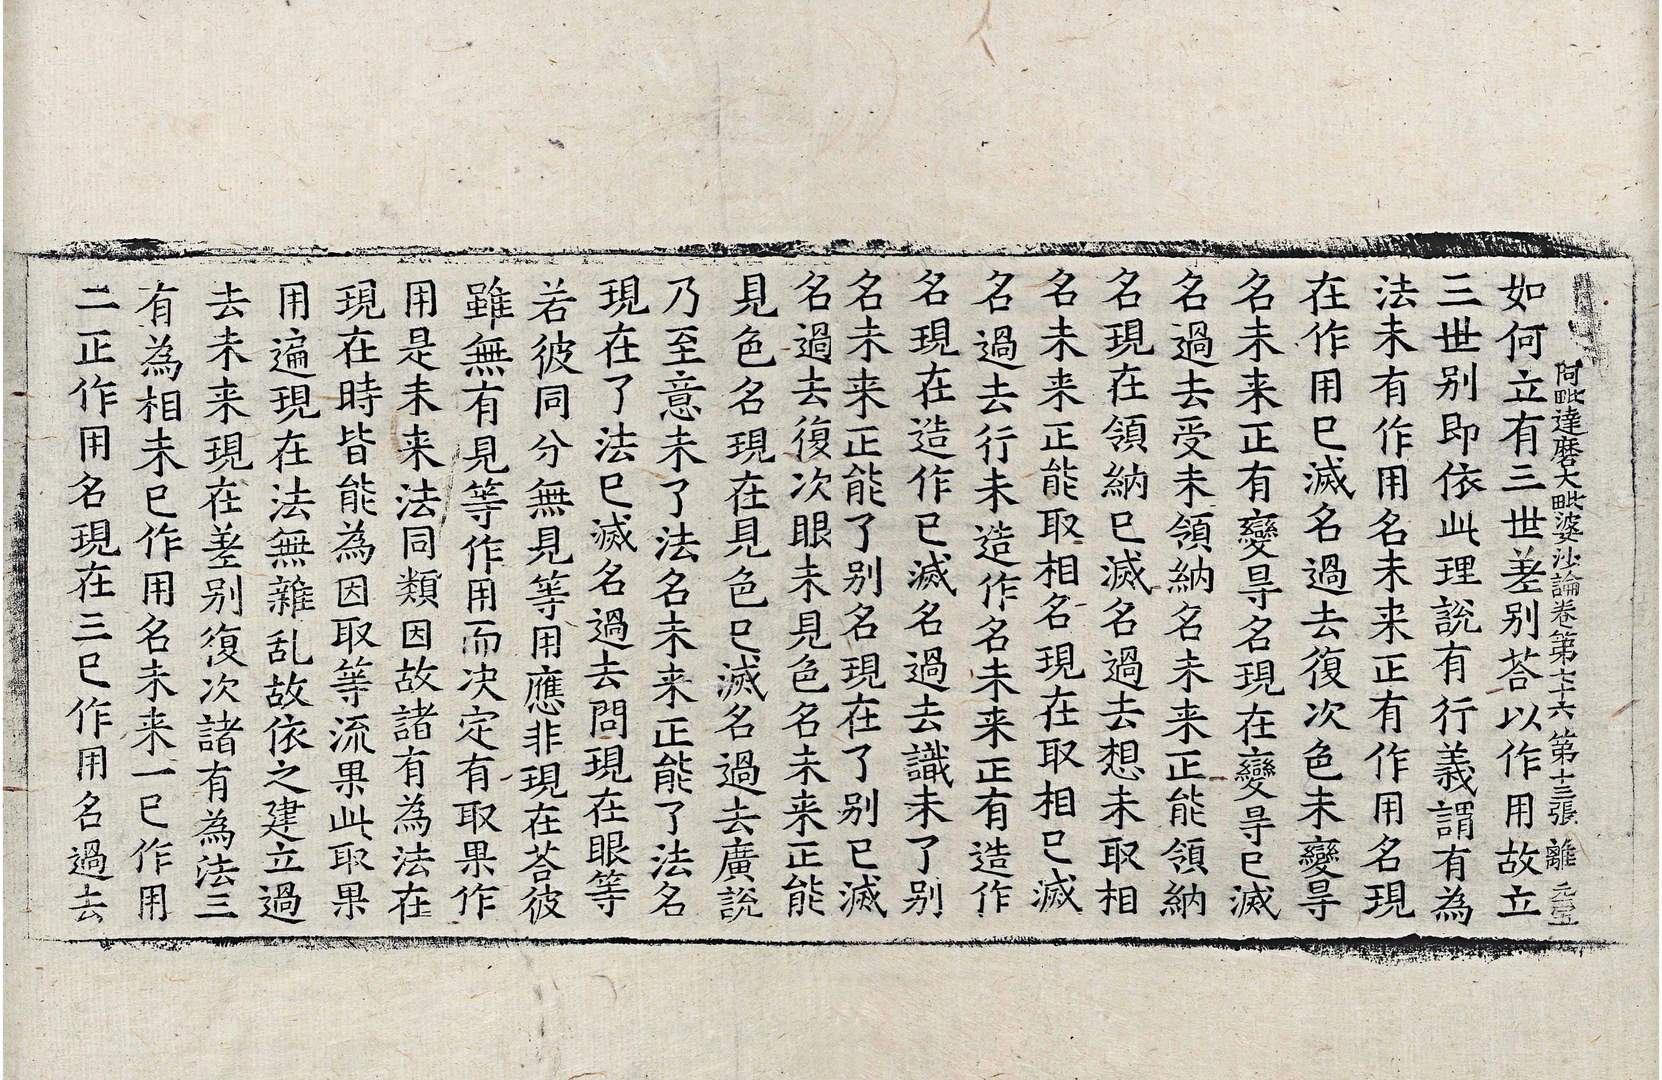 阿毗達磨大毗婆沙論卷第七十六 第十三張 離
如何立有三世差别荅以作用故立
三世别即依此理說有行義謂有為
法未有作用名未来正有作用名現
在作用已滅名過去復次色未變㝵
名未来正有變㝵名現在變㝵已滅
名過去受未領納名未来正能領納
名現在領納已滅名過去想未取相
名未来正能取相名現在取相已滅
名過去行未造作名未来正有造作
名現在造作已滅名過去識未了别
名未来正能了别名現在了别已滅
名過去復次眼未見色名未来正能
見色名現在見色已滅名過去廣說
乃至意未了法名未来正能了法名
現在了法已滅名過去問現在眼等
若彼同分無見等用應非現在荅彼
雖無有見等作用而决定有取果作
用是未来法同類因故諸有為法在
現在時皆能為因取等流果此取果
用遍現在法無雜乱故依之建立過
去未来現在差别復次諸有為法三
有為相未已作用名未来一已作用
二正作用名現在三已作用名過去